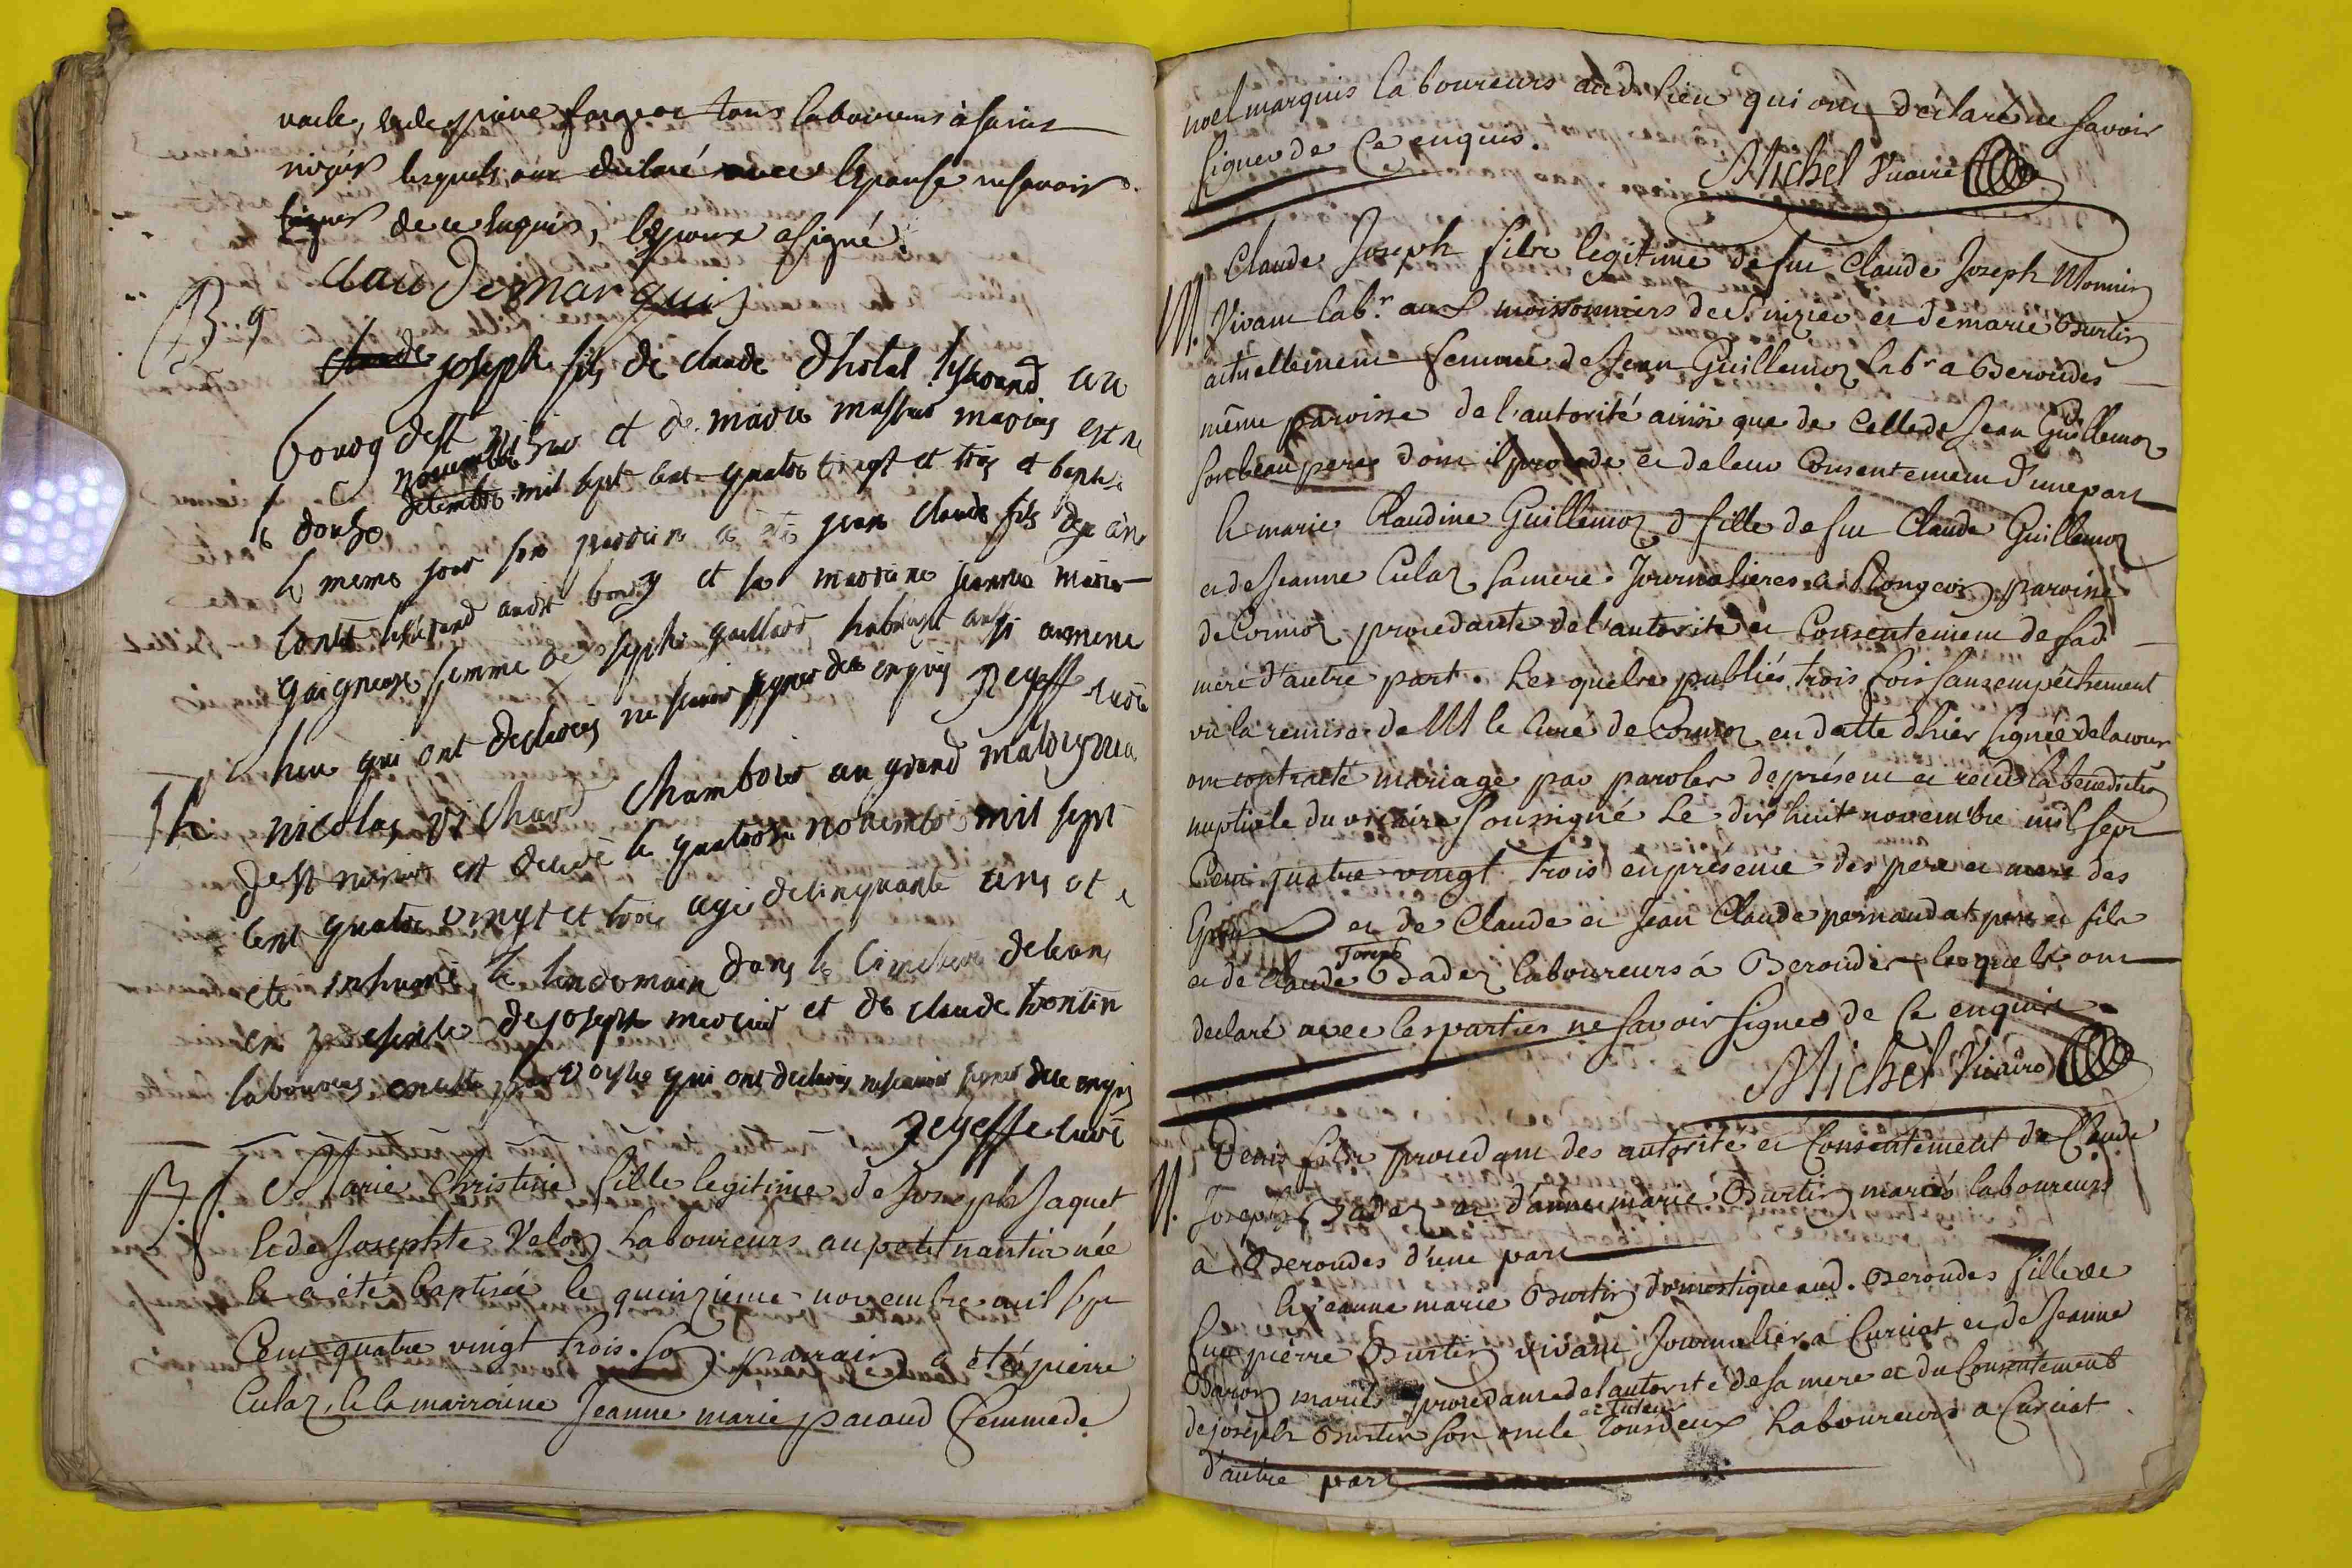 et de pierre forgeot tous laboureurs à saint
nizier lesquels ont declaré avec l'épouse ne savoir
signer de ce enquis, l'epoux a signé.
Claude marquis
B. g
joseph fils de claude d'hotel tisserand au
bourg de st nizier et de marie mariés est né
le douze novembre mil sept cent quatre vingt et trois et baptisé
le meme jour son parrain a été jean claude fils de
tisserand audit bourg et sa marraine jeanne marie
femme de joseph gaillard habitant aussi au meme
lieu qui ont declarés ne scavoir signer de ce enquis curé
Sh nicolas vichard au grand
de st nizier est decedé le quatorze novembre mil sept
cent quatre vingt et trois agé de cinquante ans et a
été inhumé le lendemain dans le cimetiere de ceans
en presence de joseph mercier et de claude trontin
laboureurs en cette paroisse qui ont declarés ne scavoir signer de ce enquis
curé
B. f. Marie Christine fille legitime de Joseph Jaquet
et de Josephte Velon Laboureurs au petit nantin née
et a été baptisée le quinzieme novembre mil sept
Cent quatre vingt trois. son parrain a été pierre
Culaz, et la marraine Jeanne marie pacaud femme de
noel marquis laboureurs aud. lieu qui ont déclaré ne savoir
signer de Ce enquis.
Michel Vicaire
M. Claude Joseph fils legitime de feu Claude Joseph Monnier
Vivant lab.r aux moissonniers de St. nizier et de marie Burtin
actuellement femme de Jean Guillemoz lab.r a Beroudes
même paroisse de l'autorité ainsi que de Celle de Jean Guillemoz
son beau pere dont il procede et de leur Consentement d'une part
Et marie Claudine Guillemoz fille de feu Claude Guillemoz
et de Jeanne Culaz sa mere Journalieres a Rongeon paroisse
de Cormoz procedante de l'autorité et Consentement de sad.
mere d'autre part. Lesquels publiés trois fois sans empêchement
vu la remise de M le Curé de Cormoz en datte d'hier signée delacour
ont contracté mariage par paroles de présent et recu la benediction
nuptiale du vicaire soussigné Le dix huit novembre mil sept
Cent quatre vingt trois en présence des pere et mere des
Epoux et de Claude et Jean Claude pernaudat pere et fils
et de Claude Joseph Badez laboureurs à Beroudes lesquels ont
declaré avec les parties ne savoir signer de Ce enquis
Michel Vicaire
M. Denis fils procedant des autorité et Consentement de Claude
Joseph Badez et d'anne marie Burtin mariés laboureurs
a Beroudes d'une part
Et jeanne marie Burtin domestique aud. Beroudes fille de
feu pierre Burtin vivant Journalier a Curciat et de Jeanne
Baron mariés procedante de l'autorité de sa mere et du Consentement
de joseph Burtin son oncle et tuteur Tous deux Laboureurs a Curciat
d'autre part